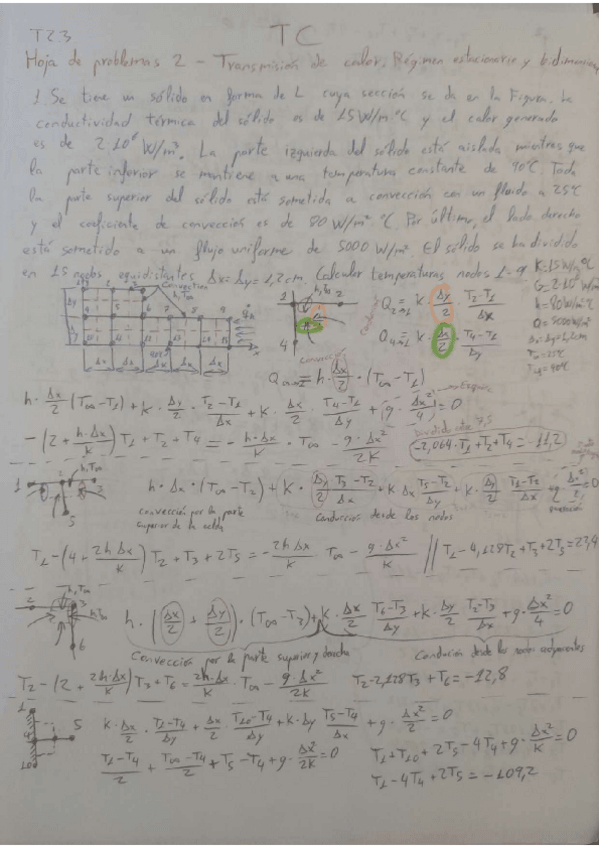 T2.3 TC
Hoja de problemas 2 - Transmisión de calor, Régimen estacionario y bidimension
1. Se tiene un sólido en forma de L cuya sección se da en la Figura. La
conductividad térmica del sólido es de 15 W/m ºC y el calor generado
es de 2·10⁶ W/m³. La parte izquierda del sólido está aislada mientras que
la parte inferior se mantiene a una temperatura constante de 90ºC. Toda
la parte superior del sólido está sometida a convección con un fluido a 25ºC
y el coeficiente de convección es de 80 W/m² ºC. Por último, el lado derecho
está sometido a un flujo uniforme de 5000 W/m². El sólido se ha dividido
en 15 nodos equidistantes Δx=Δy=1,2cm. Calcular temperaturas nodos 1-9
K=15 W/mºC
G=2·10⁶ W/m³
h=80W/m²ºC
Q=5000W/m²
Δx=Δy=1,2cm
T∞=25ºC
Convección
h,T∞
Q₂→₁ = K · Δy/2 · (T₂-T₁)/Δx
Q₄→₁ = K · Δx/2 · (T₄-T₁)/Δy
Convección
= h · Δx/2 · (T∞-T₁)
h · Δx/2 (T∞-T₁) + K · Δy/2 · (T₂-T₁)/Δx + K · Δx/2 · (T₄-T₁)/Δy + g · Δx²/4 = 0
-(2 + h·Δx/K) T₁ + T₂ + T₄ = - h·Δx/K · T∞ - g·Δx²/2K
-2,064·T₁+T₂+T₄=-11,2
h · Δx · (T∞-T₂) + K · Δy/2 · (T₃-T₂)/Δx + K Δx (T₅-T₂)/Δy + K · Δy/2 · (T₁-T₂)/Δx + g Δx²/2 = 0
convección por la parte
superior de la celda
Conducción desde los nodos
generación
T₁ - (4 + 2hΔx/K) T₂ + T₃ + 2T₅ = - 2hΔx/K · T∞ - g·Δx²/K // T₁-4,128T₂+T₃+2T₅=22,4
h · (Δx/2 + Δy/2) · (T∞-T₃) + K · Δx/2 · (T₆-T₃)/Δy + K · Δy/2 · (T₂-T₃)/Δx + g · Δx²/4 = 0
Convección por la parte superior y derecha
Conducción desde los nodos adyacentes
T₂ - (2 + 2h·Δx/K) T₃ + T₆ = - 2h·Δx/K · T∞ - g·Δx²/2K
T₂-2,128T₃+T₆=-12,8
K · Δx/2 · (T₁-T₄)/Δy + Δx/2 · (T₁₀-T₄)/Δy + K · Δy (T₅-T₄)/Δx + g · Δx²/2 = 0
(T₁-T₄)/2 + (T∞-T₄)/2 + T₅-T₄ + g · Δx²/2K = 0
T₁+T₁₀+2T₅-4T₄+g · Δx²/K = 0
T₁-4T₄+2T₅=-109,2